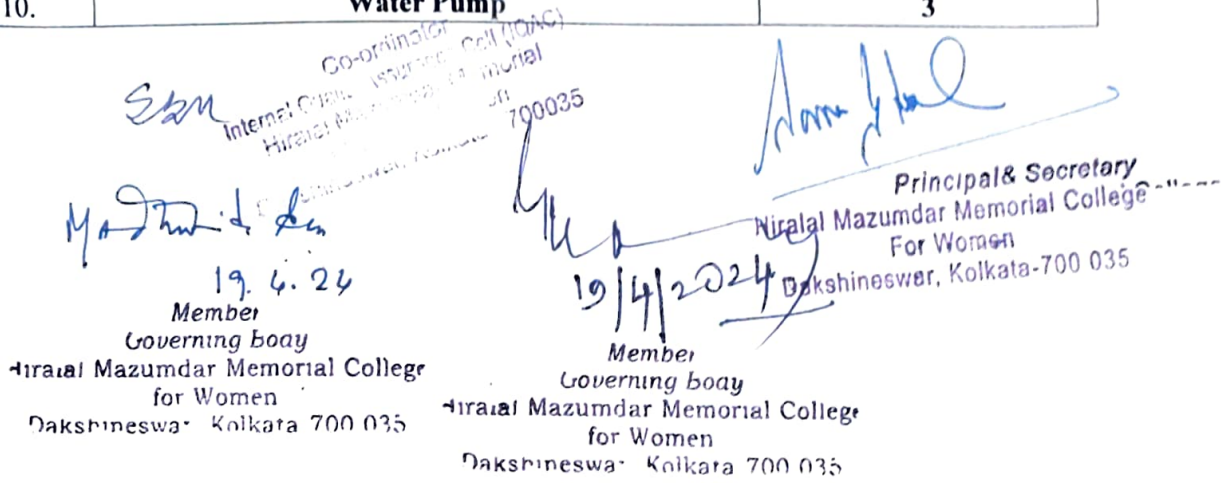 10. Water Pump 3
Co-ordinator
Internal Cell (IQAC)
700035
Principal& Secretary
Hiralal Mazumdar Memorial College
For Women
Dakshineswar, Kolkata-700 035
19.4.24
Member
Governing boay
Hiralal Mazumdar Memorial College
for Women
Dakshineswar Kolkata 700 035
19/4/2024
Member
Governing boay
Hiralal Mazumdar Memorial College
for Women
Dakshineswar Kolkata 700 035